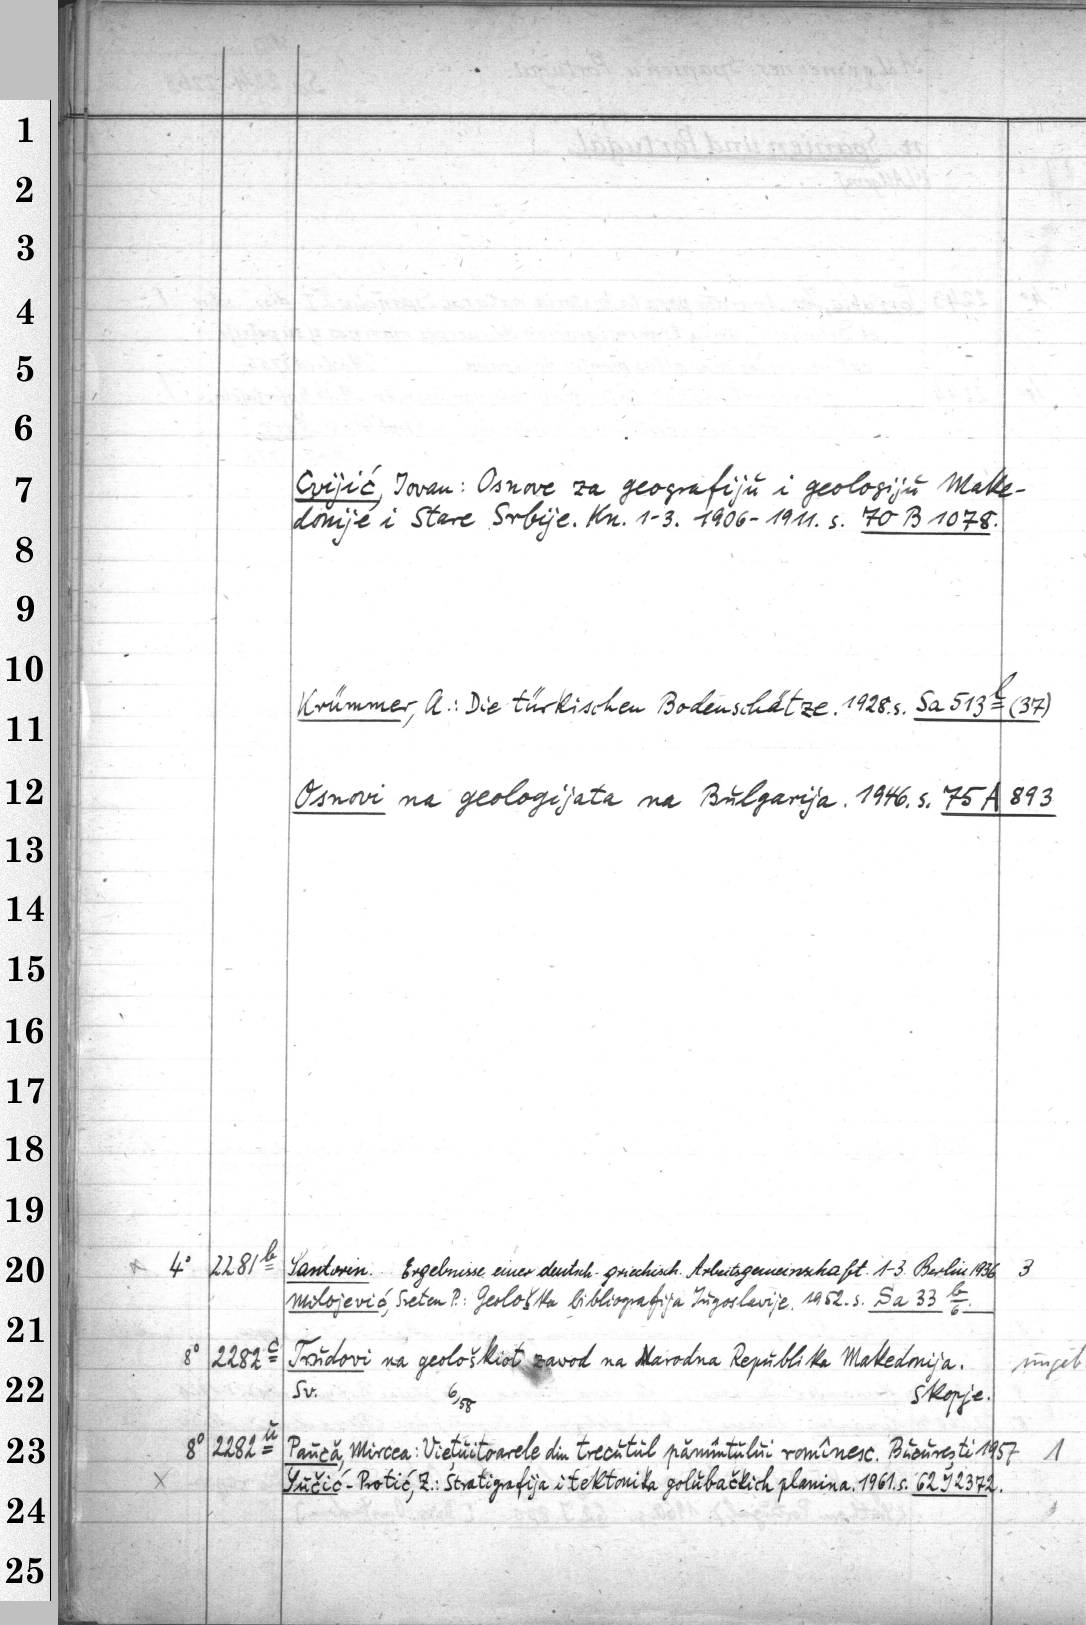 1
2
3
4
5
6
7
Cvijić, Jovan: Osnove za geografiju i geologiju Make-
donije i Stare Srbije. Kn. 1-3. 1906-1911. s. 70 B 1078.
8
9
10
Krümmer, A.: Die türkischen Bodenschätze. 1928. s. Sa 513 b (37)
11
12
Osnovi na geologijata na Bŭlgarija. 1946. s. 75 A 893
13
14
15
16
17
18
19
20
× 4° 2281 b Santorin. Ergebnisse einer deutsch-griechisch. Arbeitsgemeinschaft. 1-3 Berlin 1936 3
Milojević, Sreten P.: Geološka bibliografija Jugoslavije. 1952. s. Sa 33 b/6.
21
8° 2282 c Trudovi na geološkiot zavod na Narodna Republika Makedonija. ungeb
22
Sv. 6/58 Skopje.
23
8° 2282 u Paucă, Mircea: Viețuitoarele din trecutul pămîntului romînesc. București 1957 1
× Sučić-Protić, Z.: Stratigrafija i tektonika golubačkich planina. 1961. s. 62 J 2372.
24
25